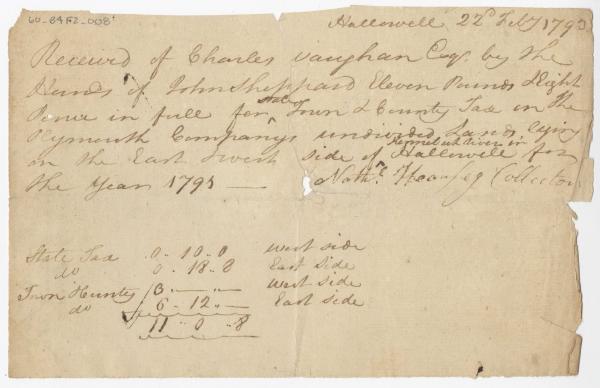 60-84F2-008
Hallowell 22d Feby 179
Received of Charles Vaughan Esqr by the
Hands of John Sheppard Eleven Pounds & Eight
Pence in full for State Town & County Tax in the
Plymouth Companys undivided Lands lying
on the East & west side of Kennebeck River in Hallowell for
the Year 1791 — Nathl. Collector
State Tax 0 - 10 - 0 west side
do 0 - 18 - 8 East side
Town & County 3 " — " — west side
do 6 - 12 " — East side
11 " 0 " 8